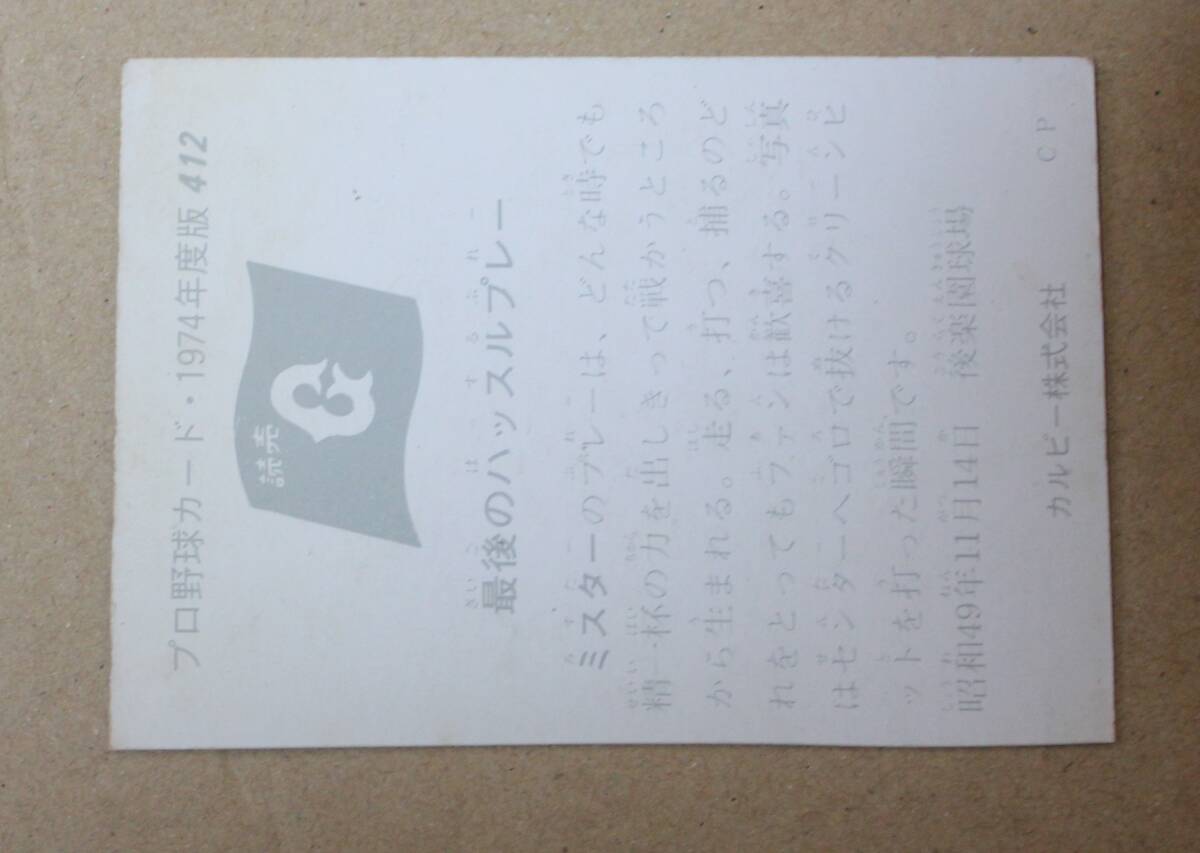 プロ野球カード・1974年度版 412
読売
G
最後のハッスルプレー
ミスターのプレーは、どんな時でも
精一杯の力を出しきって戦かうところ
から生まれる。走る、打つ、捕るのど
れをとってもファンは歓喜する。写真
はセンターへゴロで抜けるクリーンヒ
ットを打った瞬間です。
昭和49年11月14日 後楽園球場
カルビー株式会社 CP